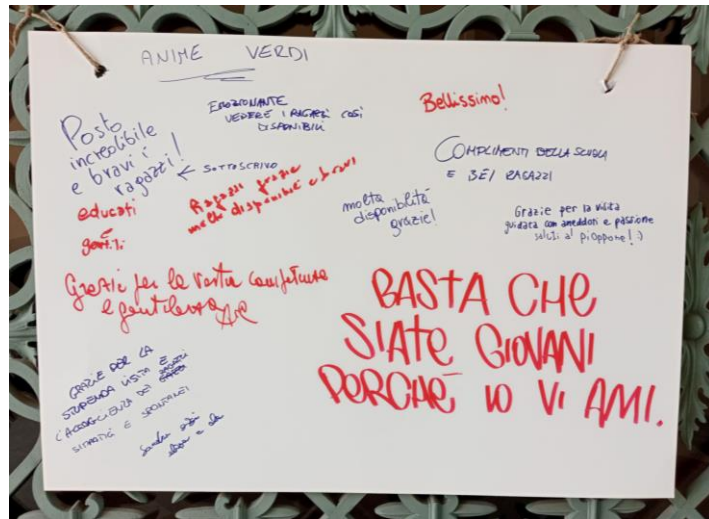 ANIME VERDI
Posto
incredibile
e bravi i
ragazzi!
← SOTTOSCRIVO
educati
e
gentili
EMOZIONANTE
VEDERE I RAGAZZI COSÌ
DISPONIBILI
Bellissimo!
Ragazzi grazie
molto disponibili e bravi
COMPLIMENTI BELLA SCUOLA
E BEI RAGAZZI
molta
disponibilità
grazie!
Grazie per la visita
guidata con aneddoti e passione
saluti al pioppone! :)
Grazie per la vostra competenza
e gentilezza
BASTA CHE
SIATE GIOVANI
PERCHÉ IO VI AMI.
GRAZIE PER LA
STUPENDA VISITA E
L'ACCOGLIENZA DEI RAGAZZI
SIMPATICI E SPONTANEI
Sandra